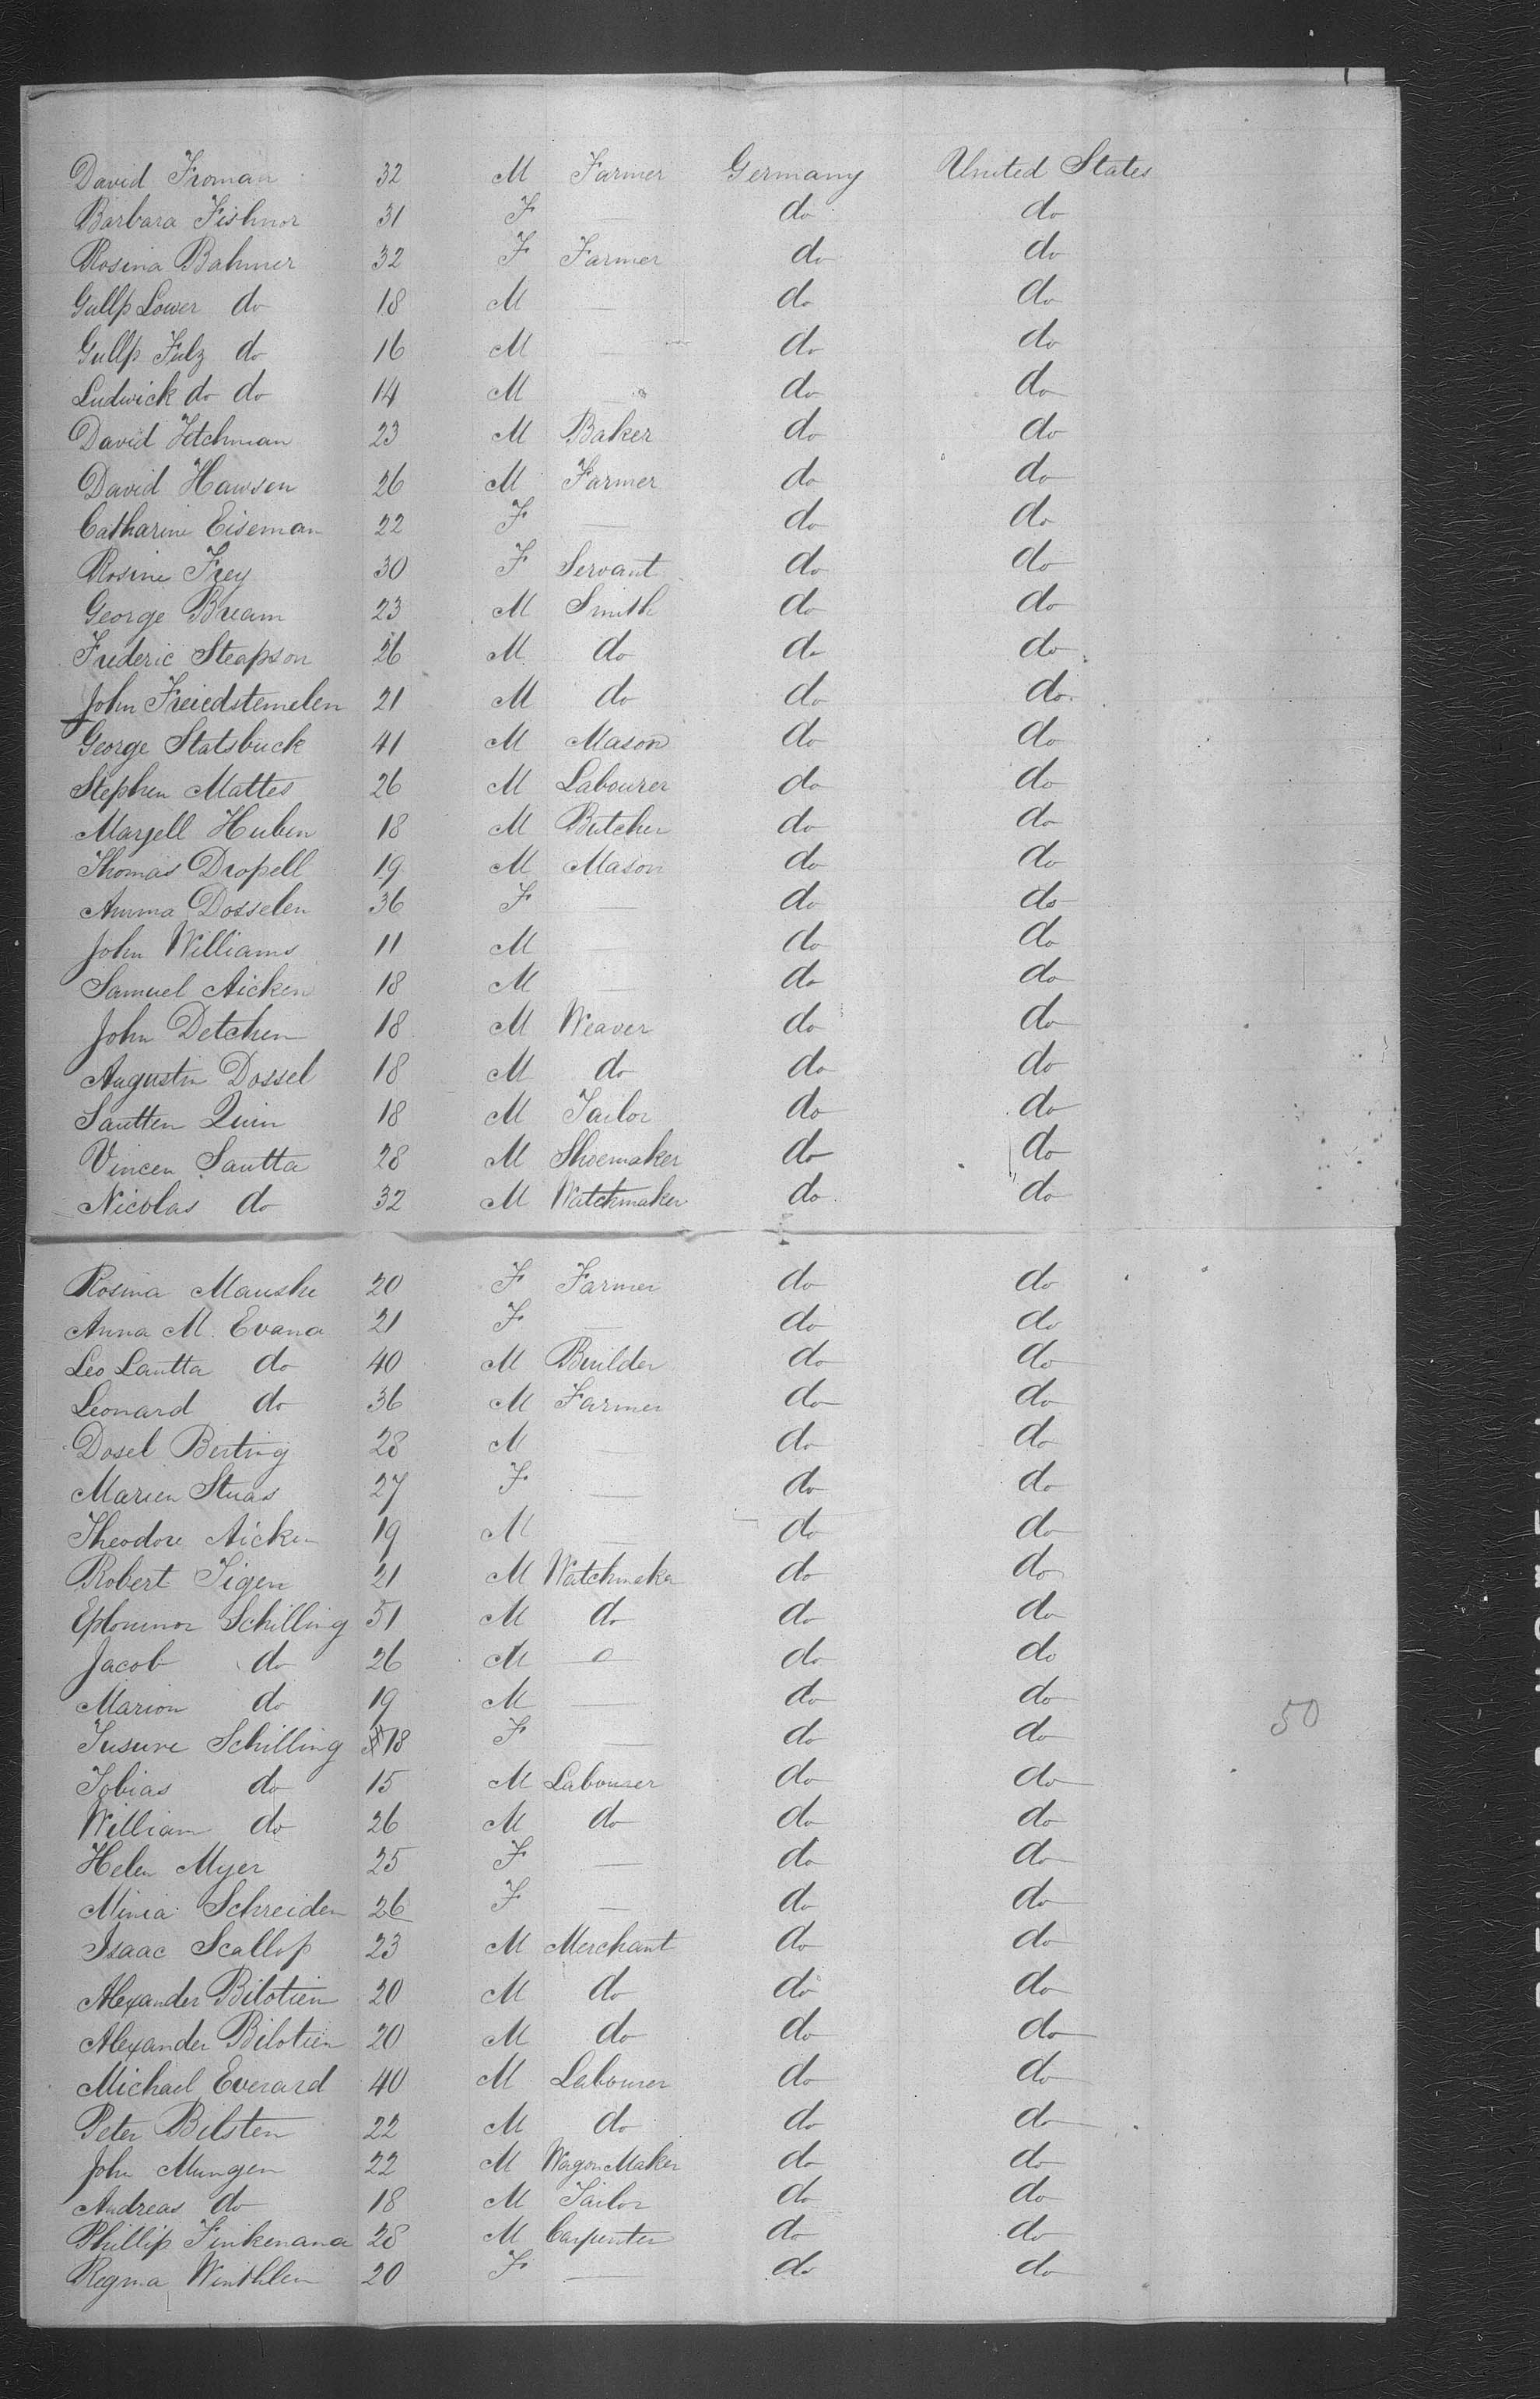 David Froman 32 M Farmer Germany United States
Barbara Fishnor 31 F — do do
Rosina Bahmer 32 F Farmer do do
Gullp Lower do 18 M — do do
Gullp Fulz do 16 M — do do
Ludwick do do 14 M — do do
David Fetchman 23 M Baker do do
David Hawsen 26 M Farmer do do
Catharine Eiseman 22 F — do do
Rosine Frey 30 F Servant do do
George Bream 23 M Smith do do
Frederic Steapson 26 M do do do
John Freiedstemelen 21 M do do do
George Statsbuck 41 M Mason do do
Stephen Mattes 26 M Labourer do do
Maryell Huben 18 M Butcher do do
Thomas Dropell 19 M Mason do do
Amma Dosselen 36 F — do do
John Williams 11 M — do do
Samuel Aicken 18 M — do do
John Detchen 18 M Weaver do do
Augustin Dossel 18 M do do do
Sautten Quin 18 M Tailor do do
Vincen Sautta 28 M Shoemaker do do
Nicolas do 32 M Watchmaker do do
Rosina Manshe 20 F Farmer do do
Anna M. Evana 21 F — do do
Leo Lautta do 40 M Builder do do
Leonard do 36 M Farmer do do
Dosel Berting 28 M — do do
Marien Stuas 27 F — do do
Theodore Aicken 19 M — do do
Robert Tigen 21 M Watchmaker do do
Schilling 51 M do do do
Jacob do 26 M do do
Marion do 19 M — do do
Susure Schilling 18 F — do do
50
Tobias do 15 M Labourer do do
William do 26 M do do do
Helen Myer 25 F — do do
Minia Schreiden 26 F — do do
Isaac Scallop 23 M Merchant do do
Alexander Bilotien 20 M do do do
Alexander Bilotien 20 M do do do
Michael Everard 40 M Labourer do do
Peter Bilsten 22 M do do do
John Mungen 22 M Wagon Maker do do
Andreas do 18 M Tailor do do
Phillip Finkenana 28 M Carpenter do do
Regina Winthlen 20 F — do do